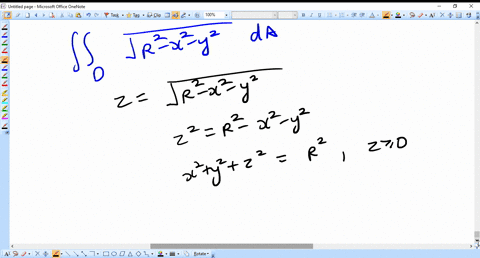 Untitled page - Microsoft Office OneNote
100%
∬_D √(R²-x²-y²) dA
z = √(R²-x²-y²)
z² = R² - x² - y²
x²+y²+z² = R² , z≥0
Rotate